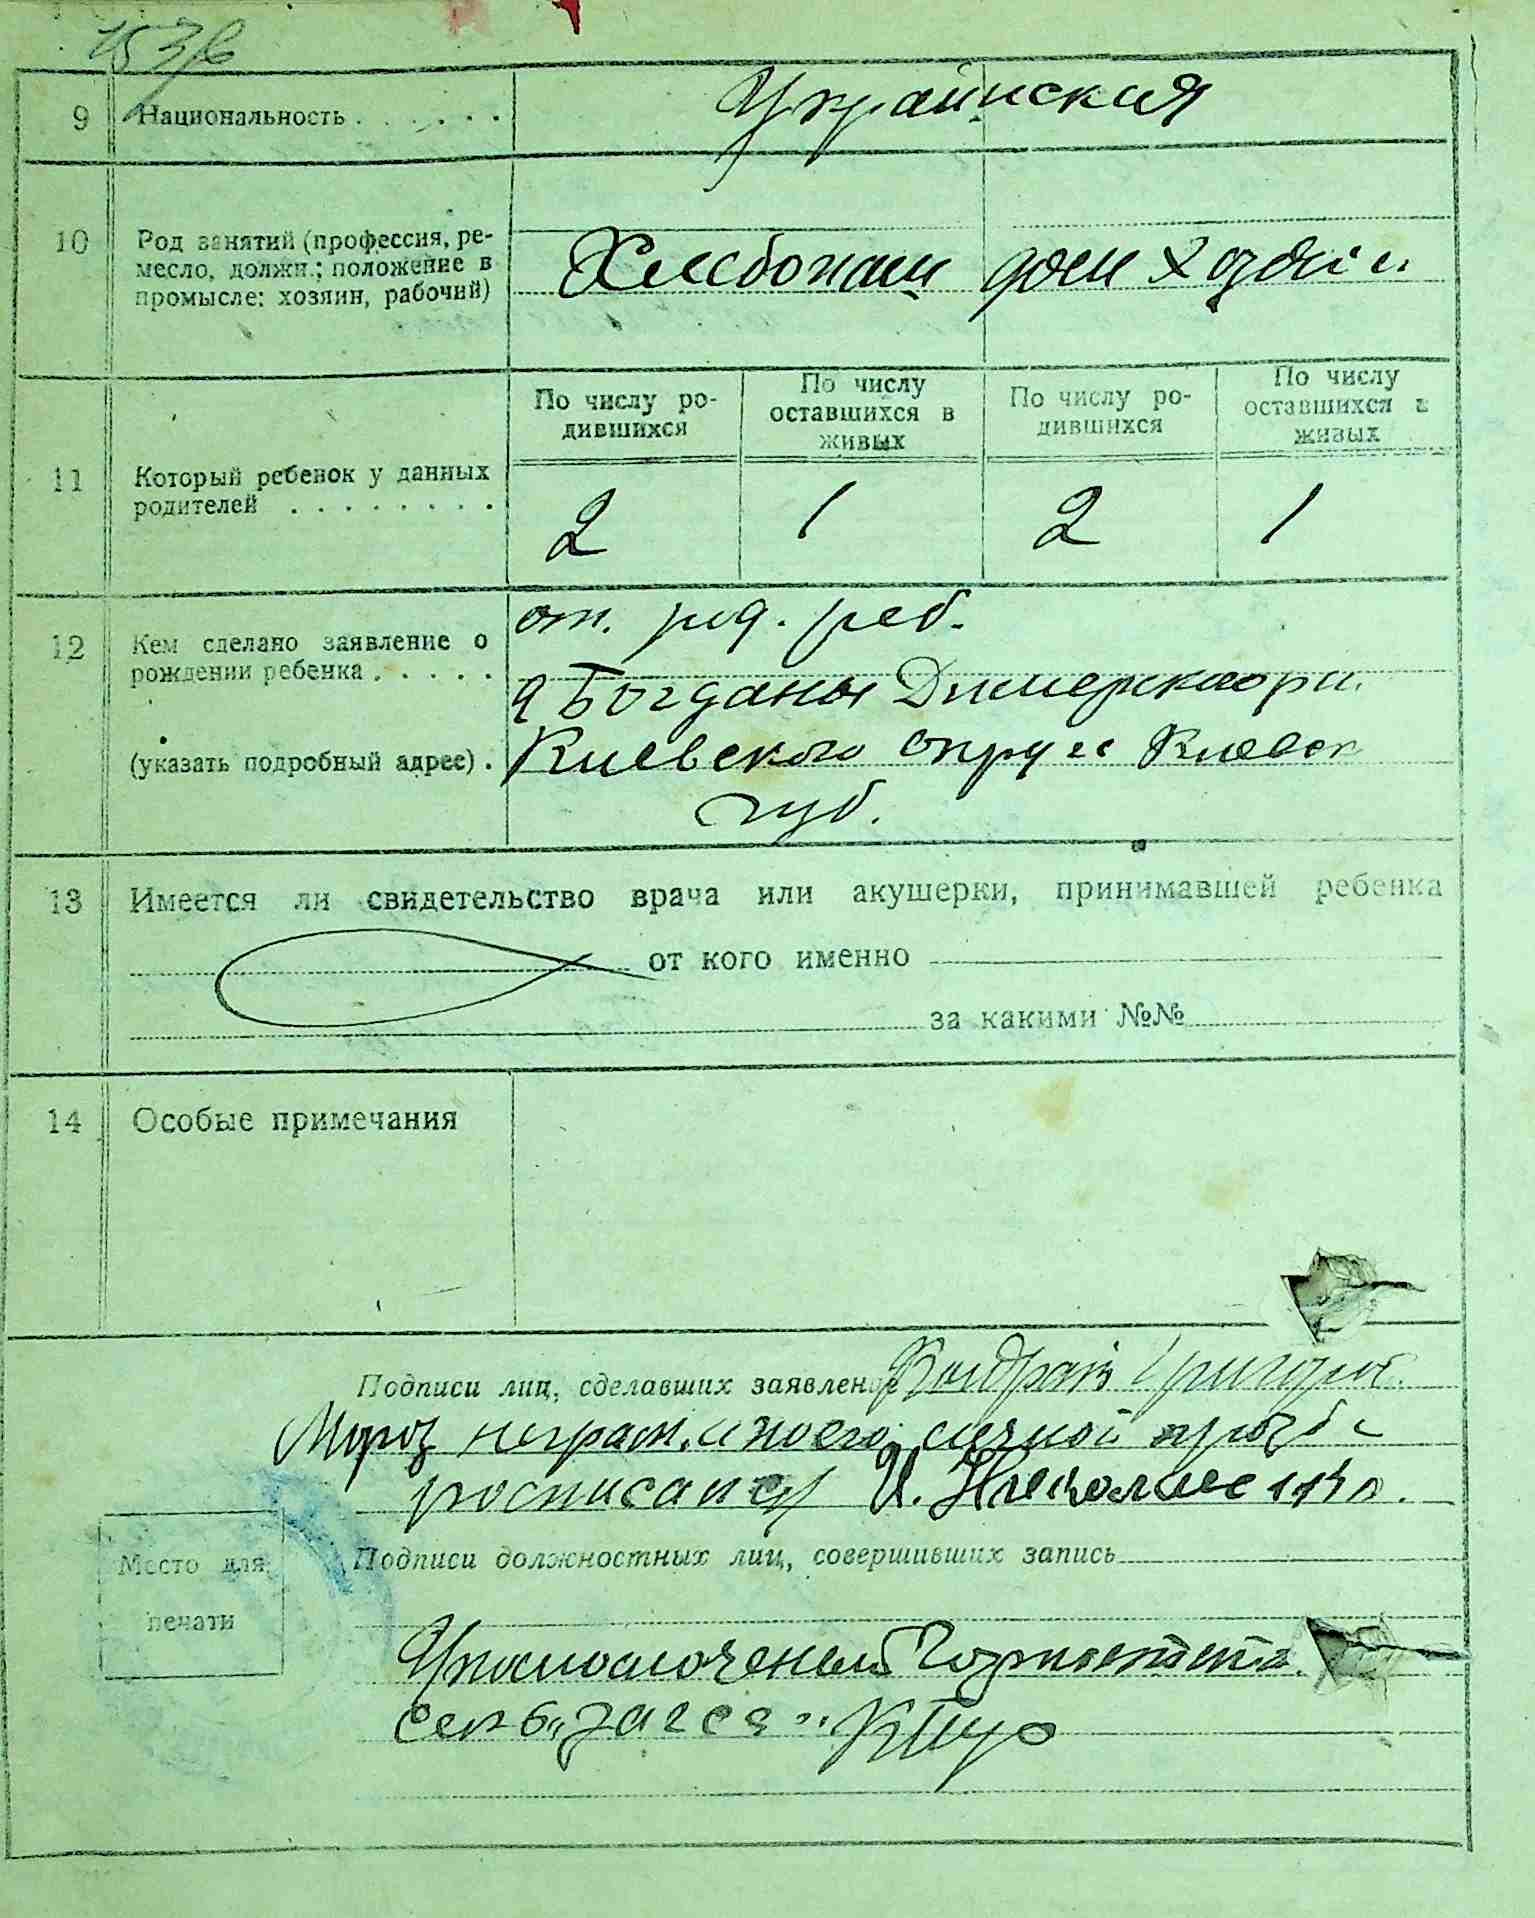 9 Национальность . . . . . . Украинская
10 Род занятий (профессия, ре-
месло, должн.; положение в
промысле: хозяин, рабочий)
Хлебопаш дом хозяи
По числу ро-
дившихся
По числу
оставшихся в
живых
По числу ро-
дившихся
По числу
оставшихся в
живых
11 Который ребенок у данных
родителей . . . . . . . .
2 1 2 1
12 Кем сделано заявление о
рождении ребенка . . . . .
(указать подробный адрес) .
от. род. реб.
Богданы Димерского
Киевского округа Киевск
губ.
13 Имеется ли свидетельство врача или акушерки, принимавшей ребенка
от кого именно
за какими №№
14 Особые примечания
Подписи лиц, сделавших заявление Кондрат Григоров.
Мороз неграм. и по его личной прозбе
росписался И.
Подписи должностных лиц, совершивших запись
Место для
печати
Уполномоченый
"загса"